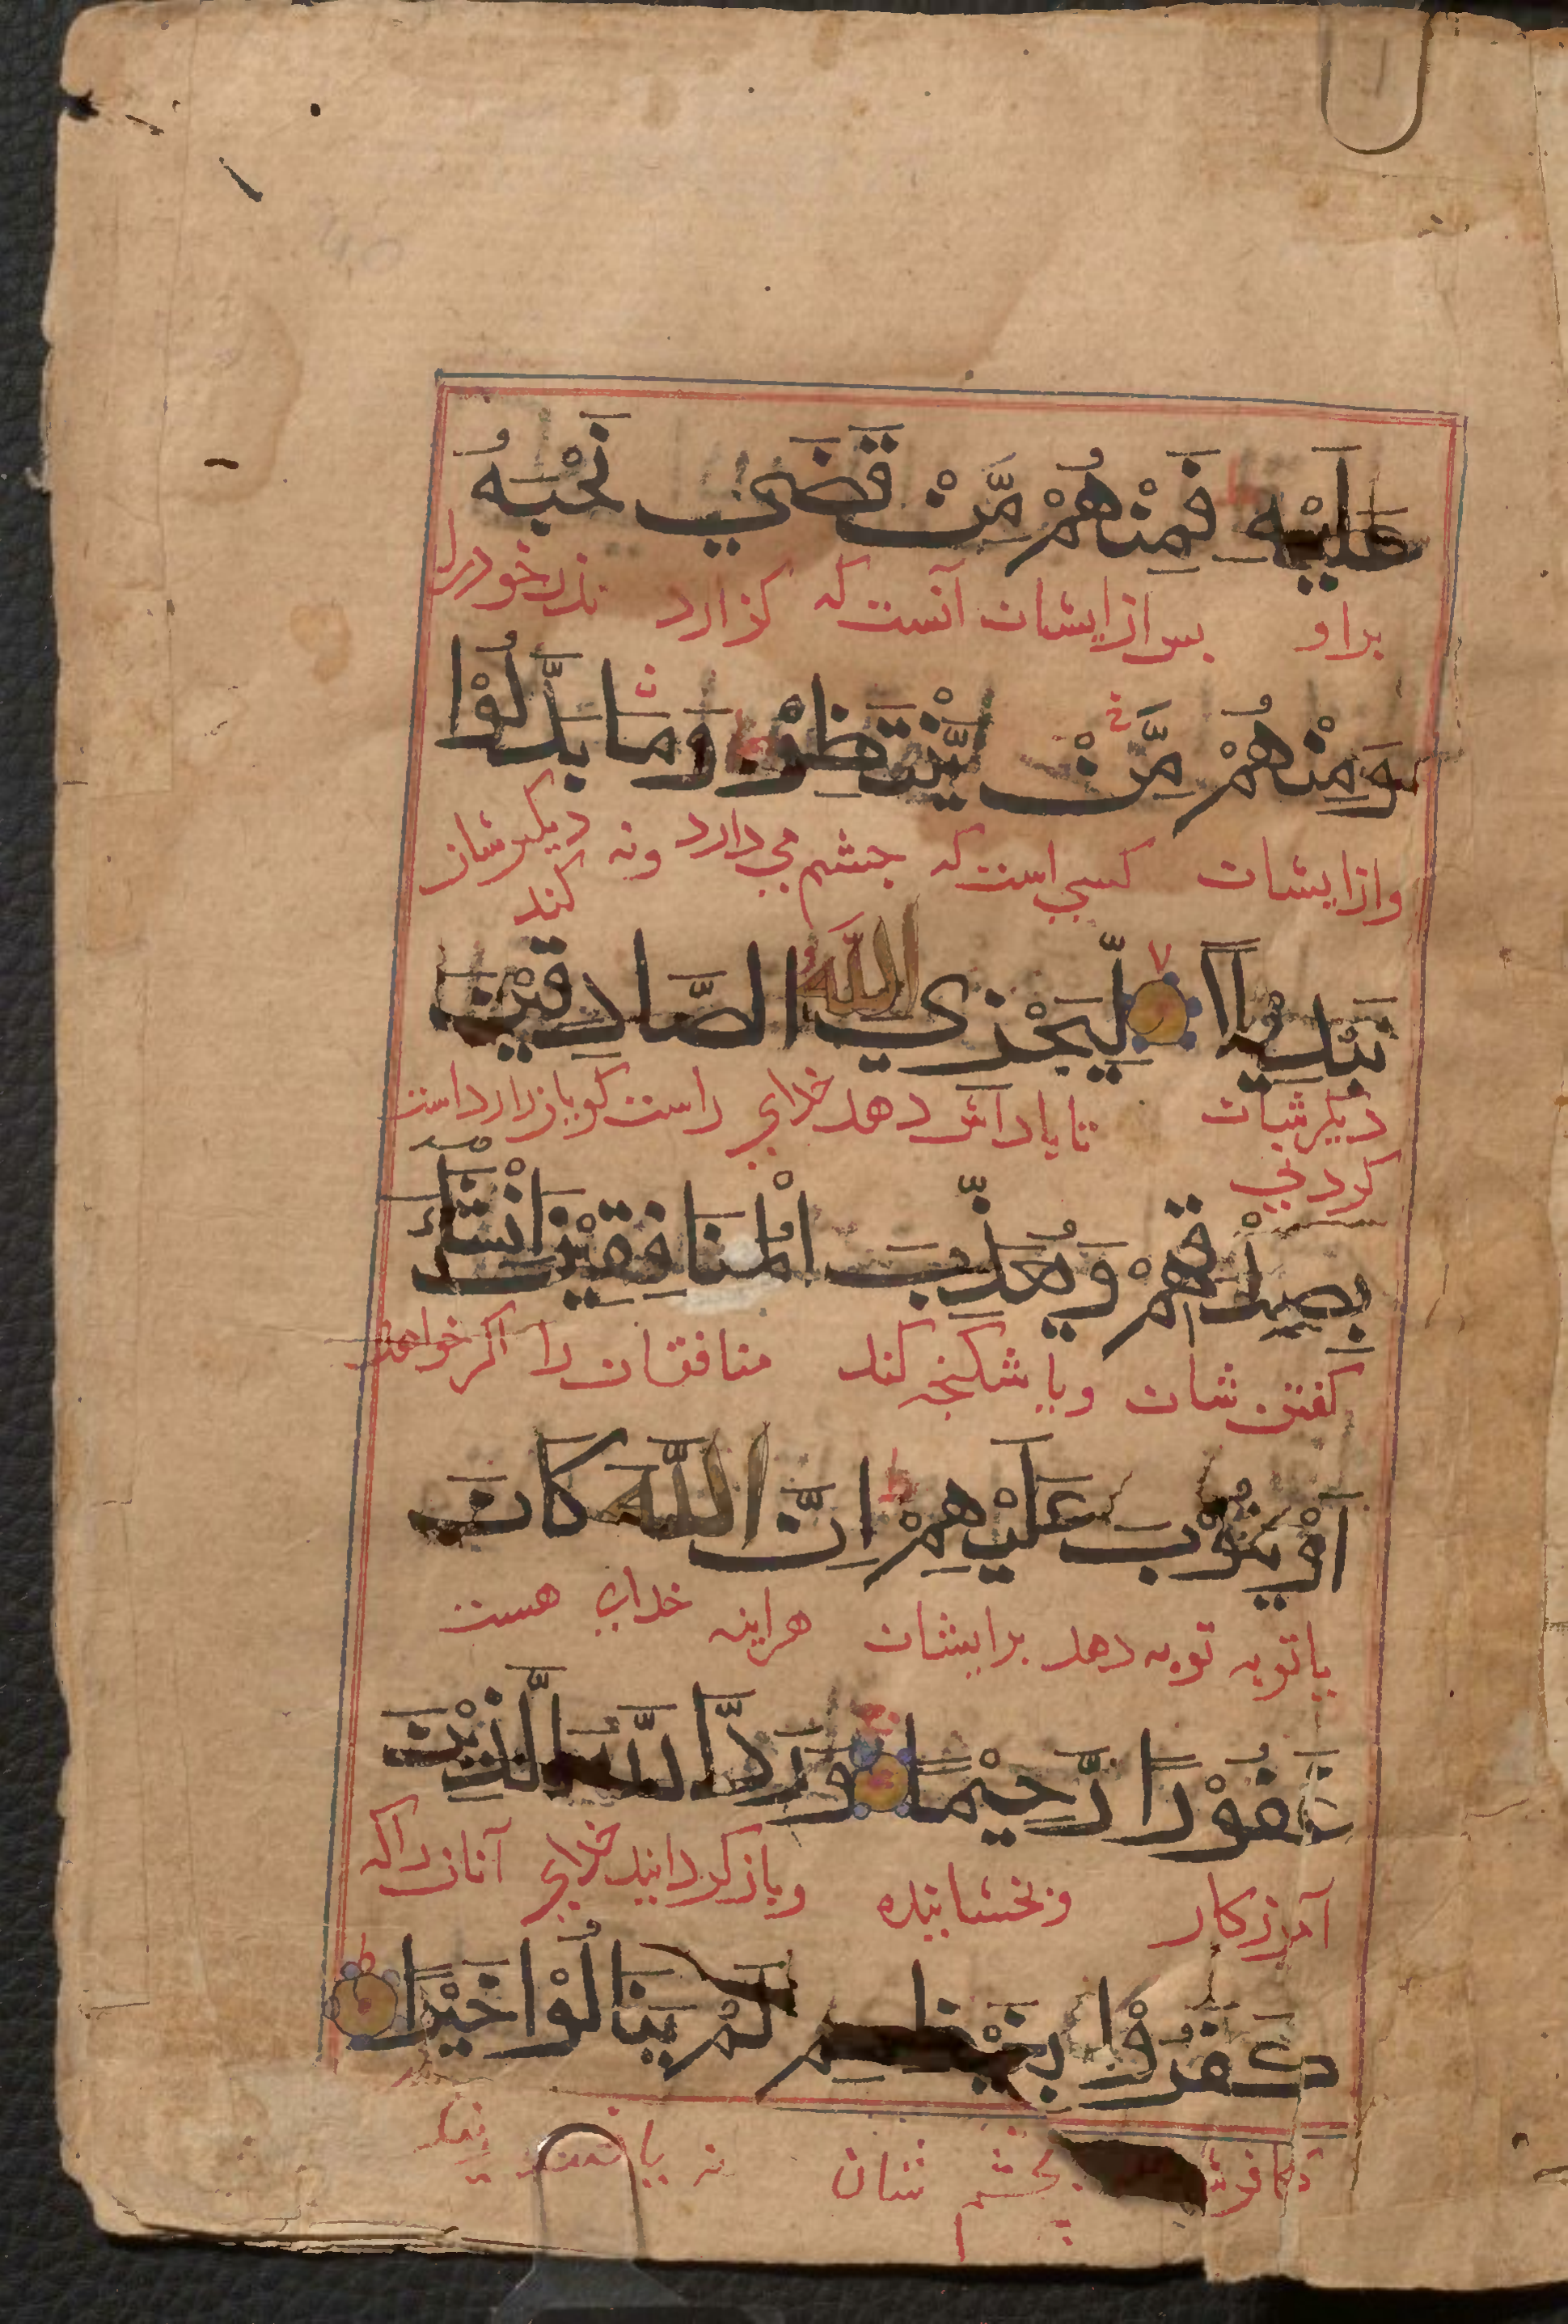 عَلَيْهِ فَمِنْهُمْ مَّنْ قَضَي نَحْبَهُ
براو بس ازایشان آنست که کزارد نذر خود را
وَمِنْهُمْ مَّنْ يَّنْتَظِرُ وَمَا بَدَّلُوْا
وازایشان کسی است که جشم می دارد ونه دیکرشان
کند
تَبْدِيْلًا لِّيَجْزِيَ اللَّهُ الصَّادِقِيْنَ
دیکرشان تا باداش دهد خدای راست کویانرا براست
کردنی
بِصِدْقِهِمْ وَيُعَذِّبَ الْمُنَافِقِيْنَ اِنْ شَآءَ
کفتن شان ویا شکنجه کند منافقان را اکر خواهد
اَوْ يَتُوْبَ عَلَيْهِمْ اِنَّ اللَّهَ كَانَ
یا توبه توبه دهد برایشان هراینه خدای هست
غَفُوْرًا رَّحِيْمًا وَرَدَّ اللَّهُ الَّذِيْنَ
آمرزکار وبخشاینده وباز کردانید خدای آنان را که
كَفَرُوْا بِغَيْظِهِمْ لَمْ يَنَالُوْا خَيْرًا
بخشم شان نه یافتند